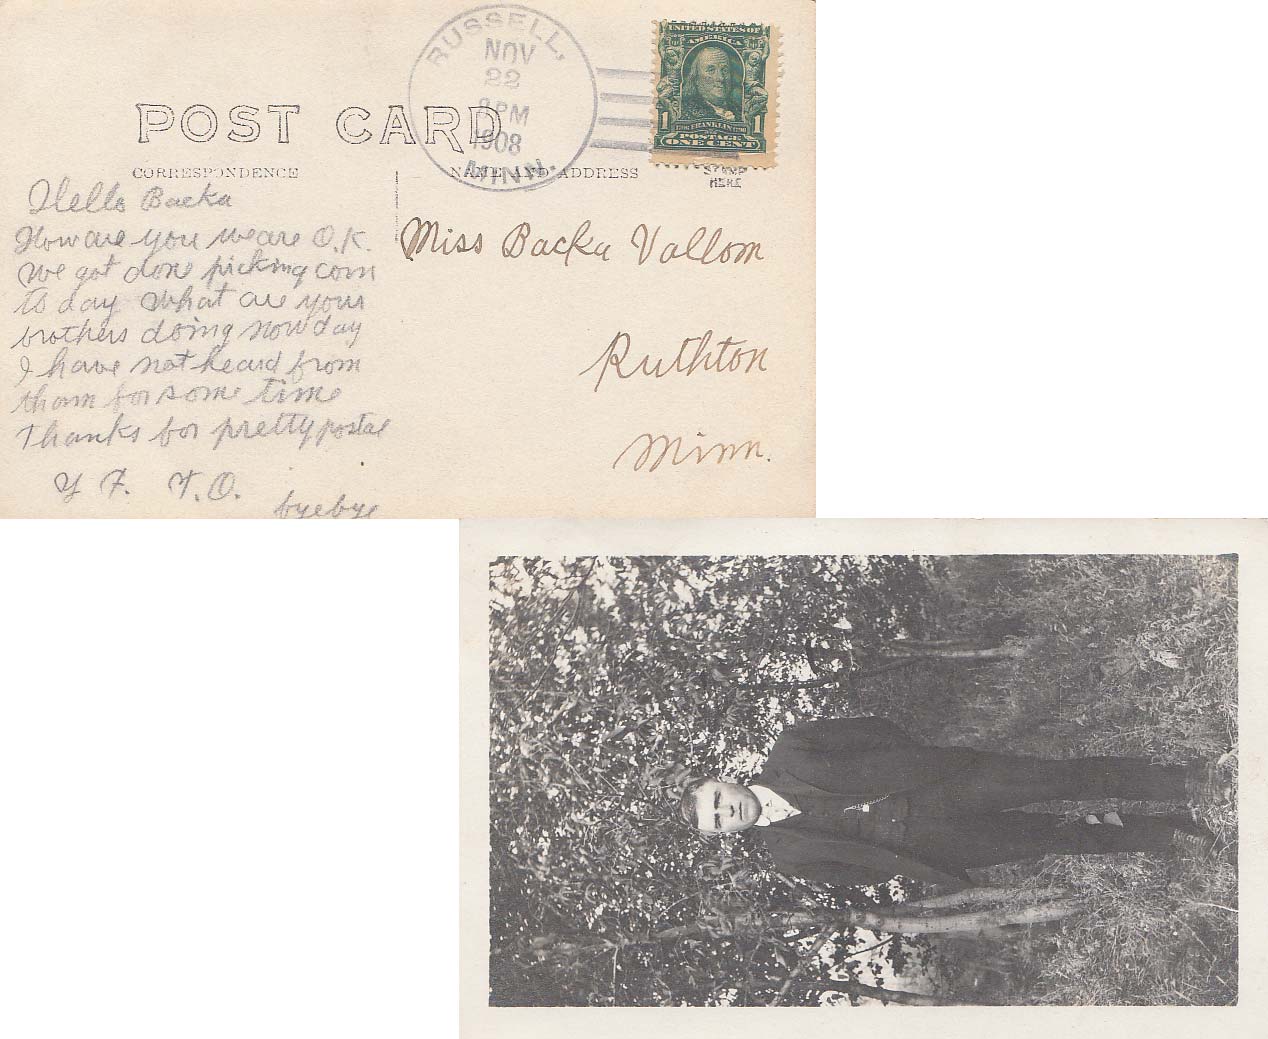 RUSSELL,
NOV
22
8 PM
1908
MINN.
UNITED STATES OF
AMERICA
1706 FRANKLIN 1790
1 POSTAGE 1
ONE CENT
POST CARD
CORRESPONDENCE
NAME AND ADDRESS
STAMP
HERE
Hello Backa
How are you we are O.K.
We got done picking corn
to day what are your
brothers doing now day
I have not heard from
tham for some time
Thanks for pretty postal
Y F. T.O.
byebye
Miss Backa Vallom
Ruthton
Minn.